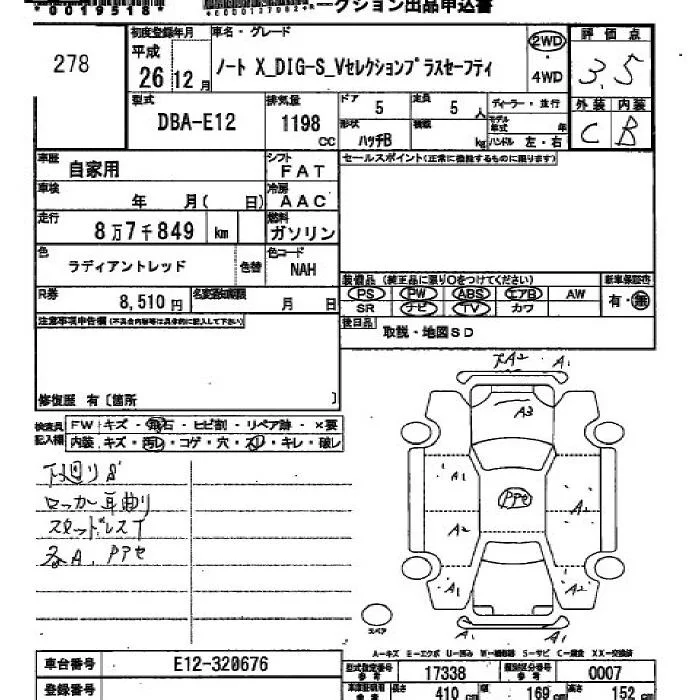 *0019518*
ークション出品申込書
278
初度登録年月
平成
26 12 月
車名・グレード
ノート X_DIG-S_Vセレクションプラスセーフティ
2WD
・
4WD
評価点
3.5
型式
DBA-E12
排気量
1198
cc
ドア 5
定員 5 人
ディーラー・並行
形状
ハッチB
積載
kg
モデル年式 年
ハンドル 左・右
外装 内装
C B
車歴
自家用
シフト
FAT
セールスポイント(正常に機能するものに限ります)
車検
年 月( 日)
冷房
AAC
走行
8万7千849 km
燃料
ガソリン
色
ラディアントレッド
色替
色コード
NAH
装備品 (純正品に限り○をつけてください)
新車保証書
PS PW ABS エアB AW
SR ナビ TV カワ
有・無
R券
8,510 円
名変期限
月 日
後日品
取説・地図SD
注意事項申告欄(不具合内容等は具体的に記入して下さい)
修復歴 有〔箇所 〕
検査員記入欄
FW キズ・飛石・ヒビ割・リペア跡・×要
内装 キズ・汚レ・コゲ・穴・スレ・キレ・破レ
下廻りS
ロッカー耳曲り
スタッドレスT
各A、PPセ
A2 A1
A3
A1
PPセ
A
A2
A1
A2
A1
スペア
A=キズ E=エクボ U=凹み W=補修跡 S=サビ C=腐食 XX=交換済
車台番号
E12-320676
型式指定番号
参考
17338
類別区分番号
参考
0007
登録番号
車体証明用
参考
長さ
410
幅
169
高さ
152